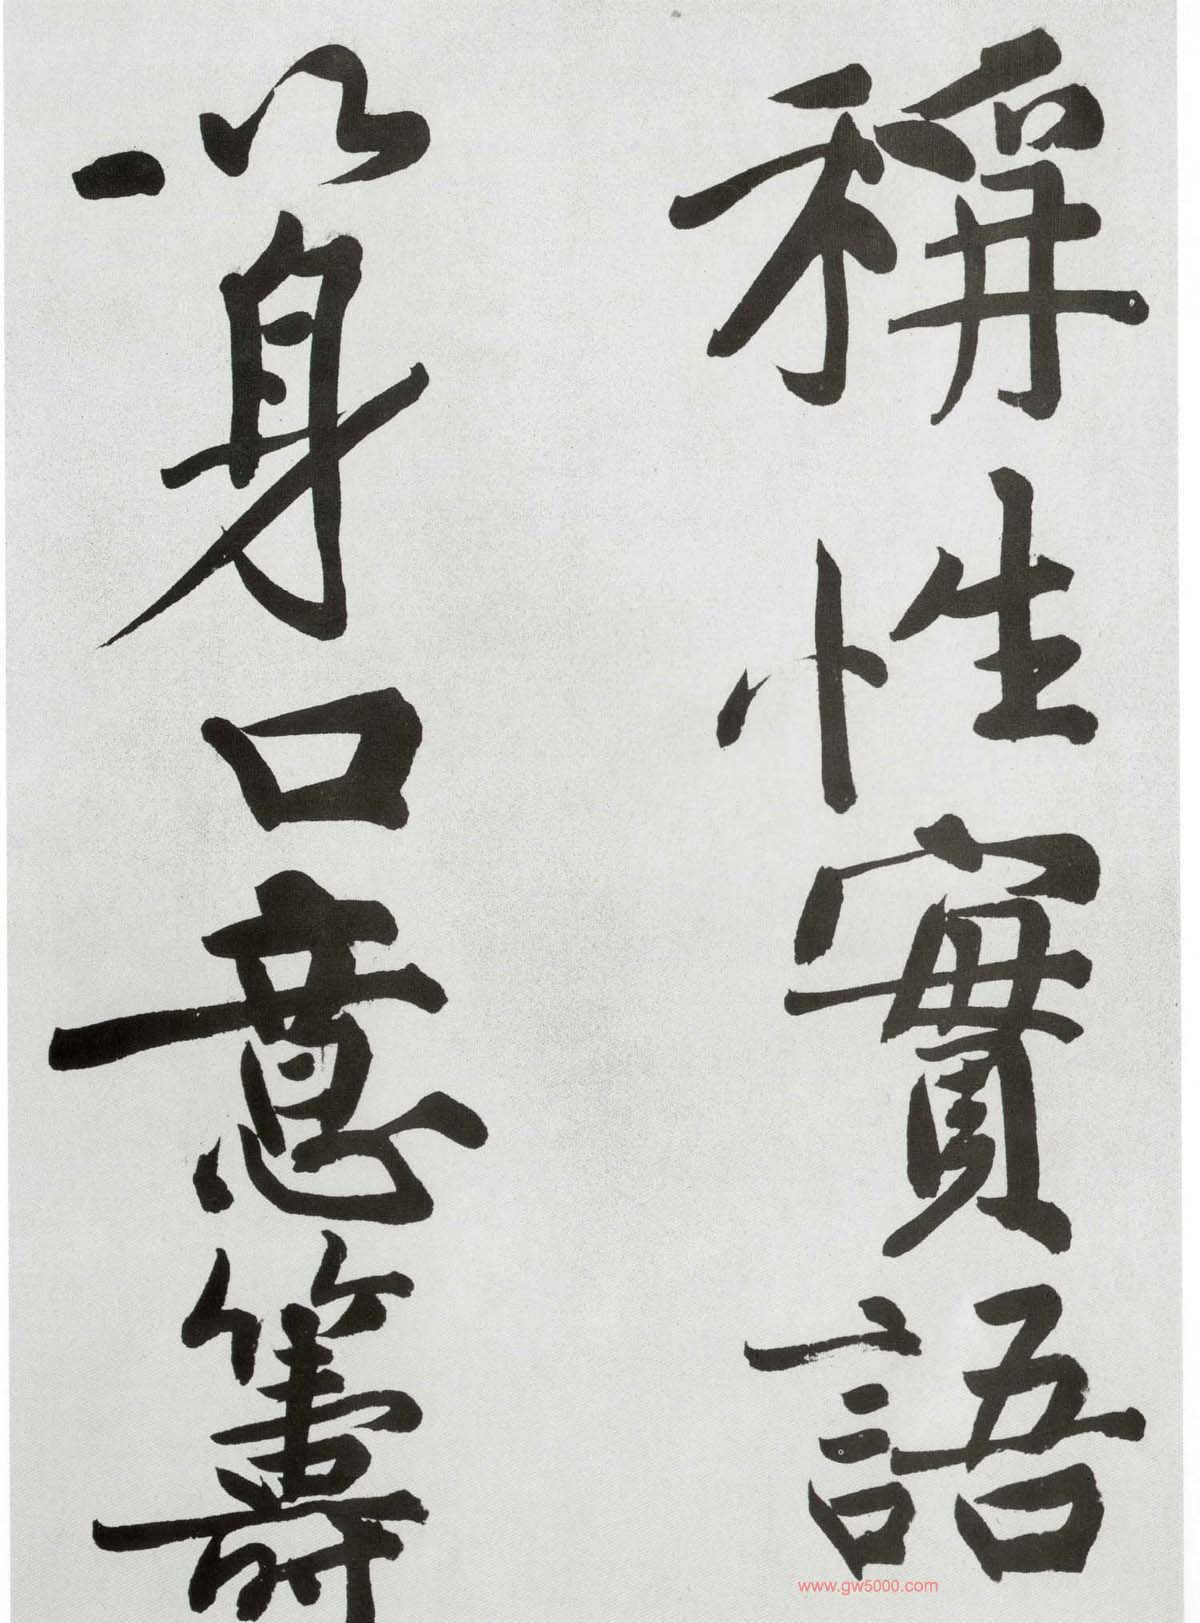 稱性實語
以身口意籌
www.gw5000.com